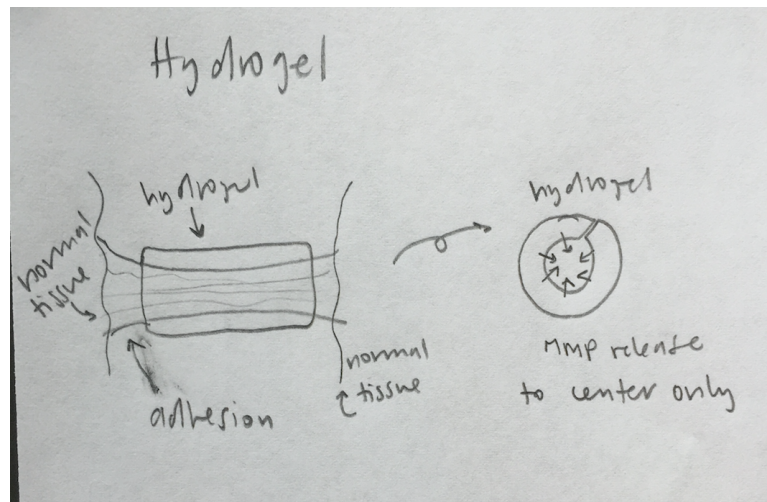 Hydrogel
hydrogel
normal
tissue
adhesion
normal
tissue
hydrogel
MMP release
to center only